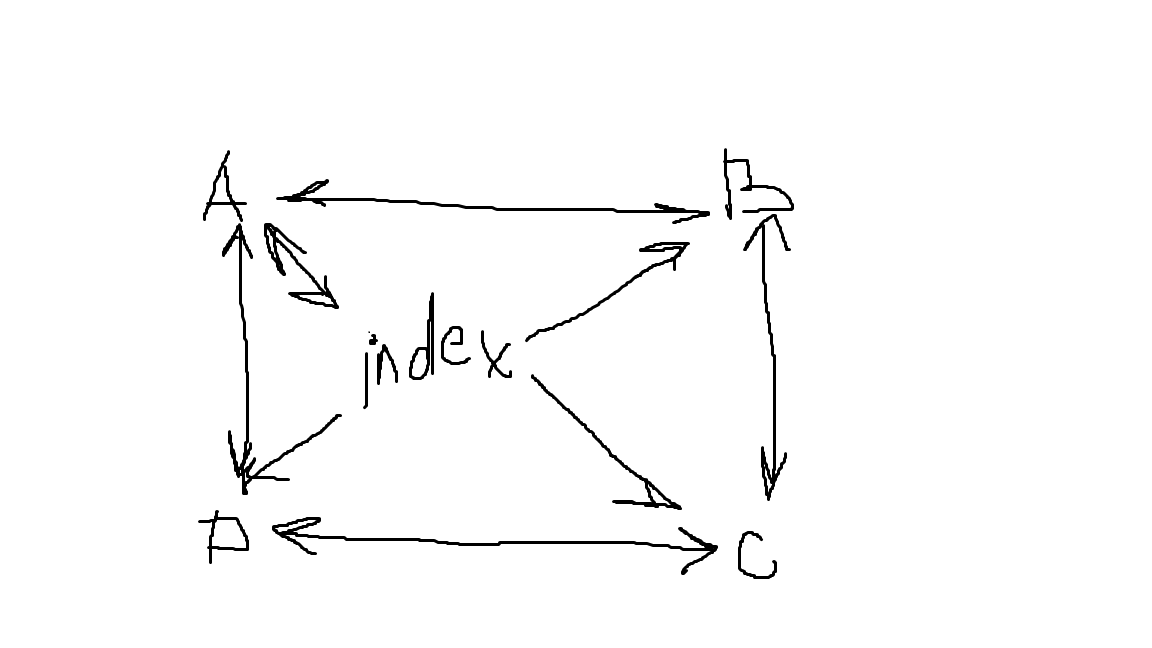 A
B
index
D
C